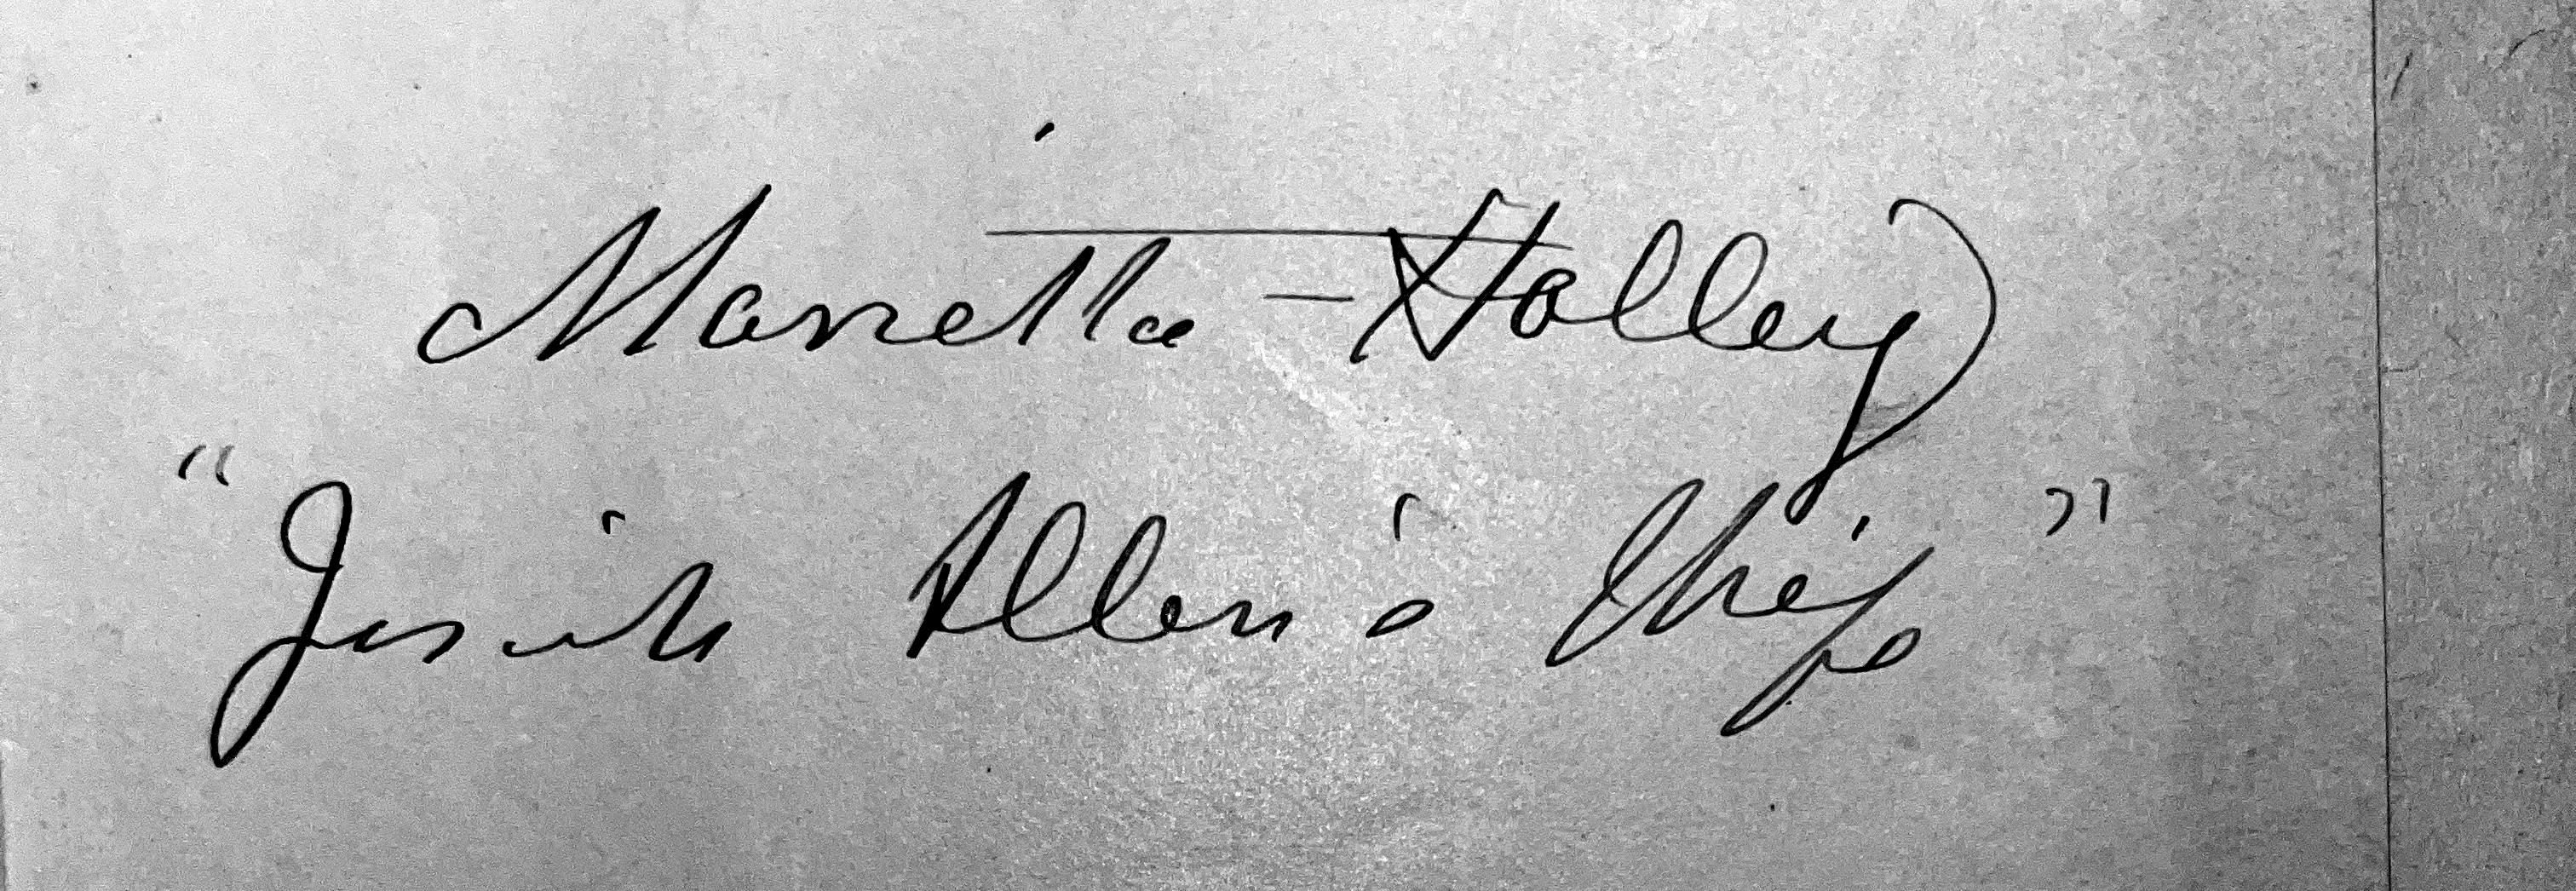 Marietta Holley
"Josiah Allen's Wife"